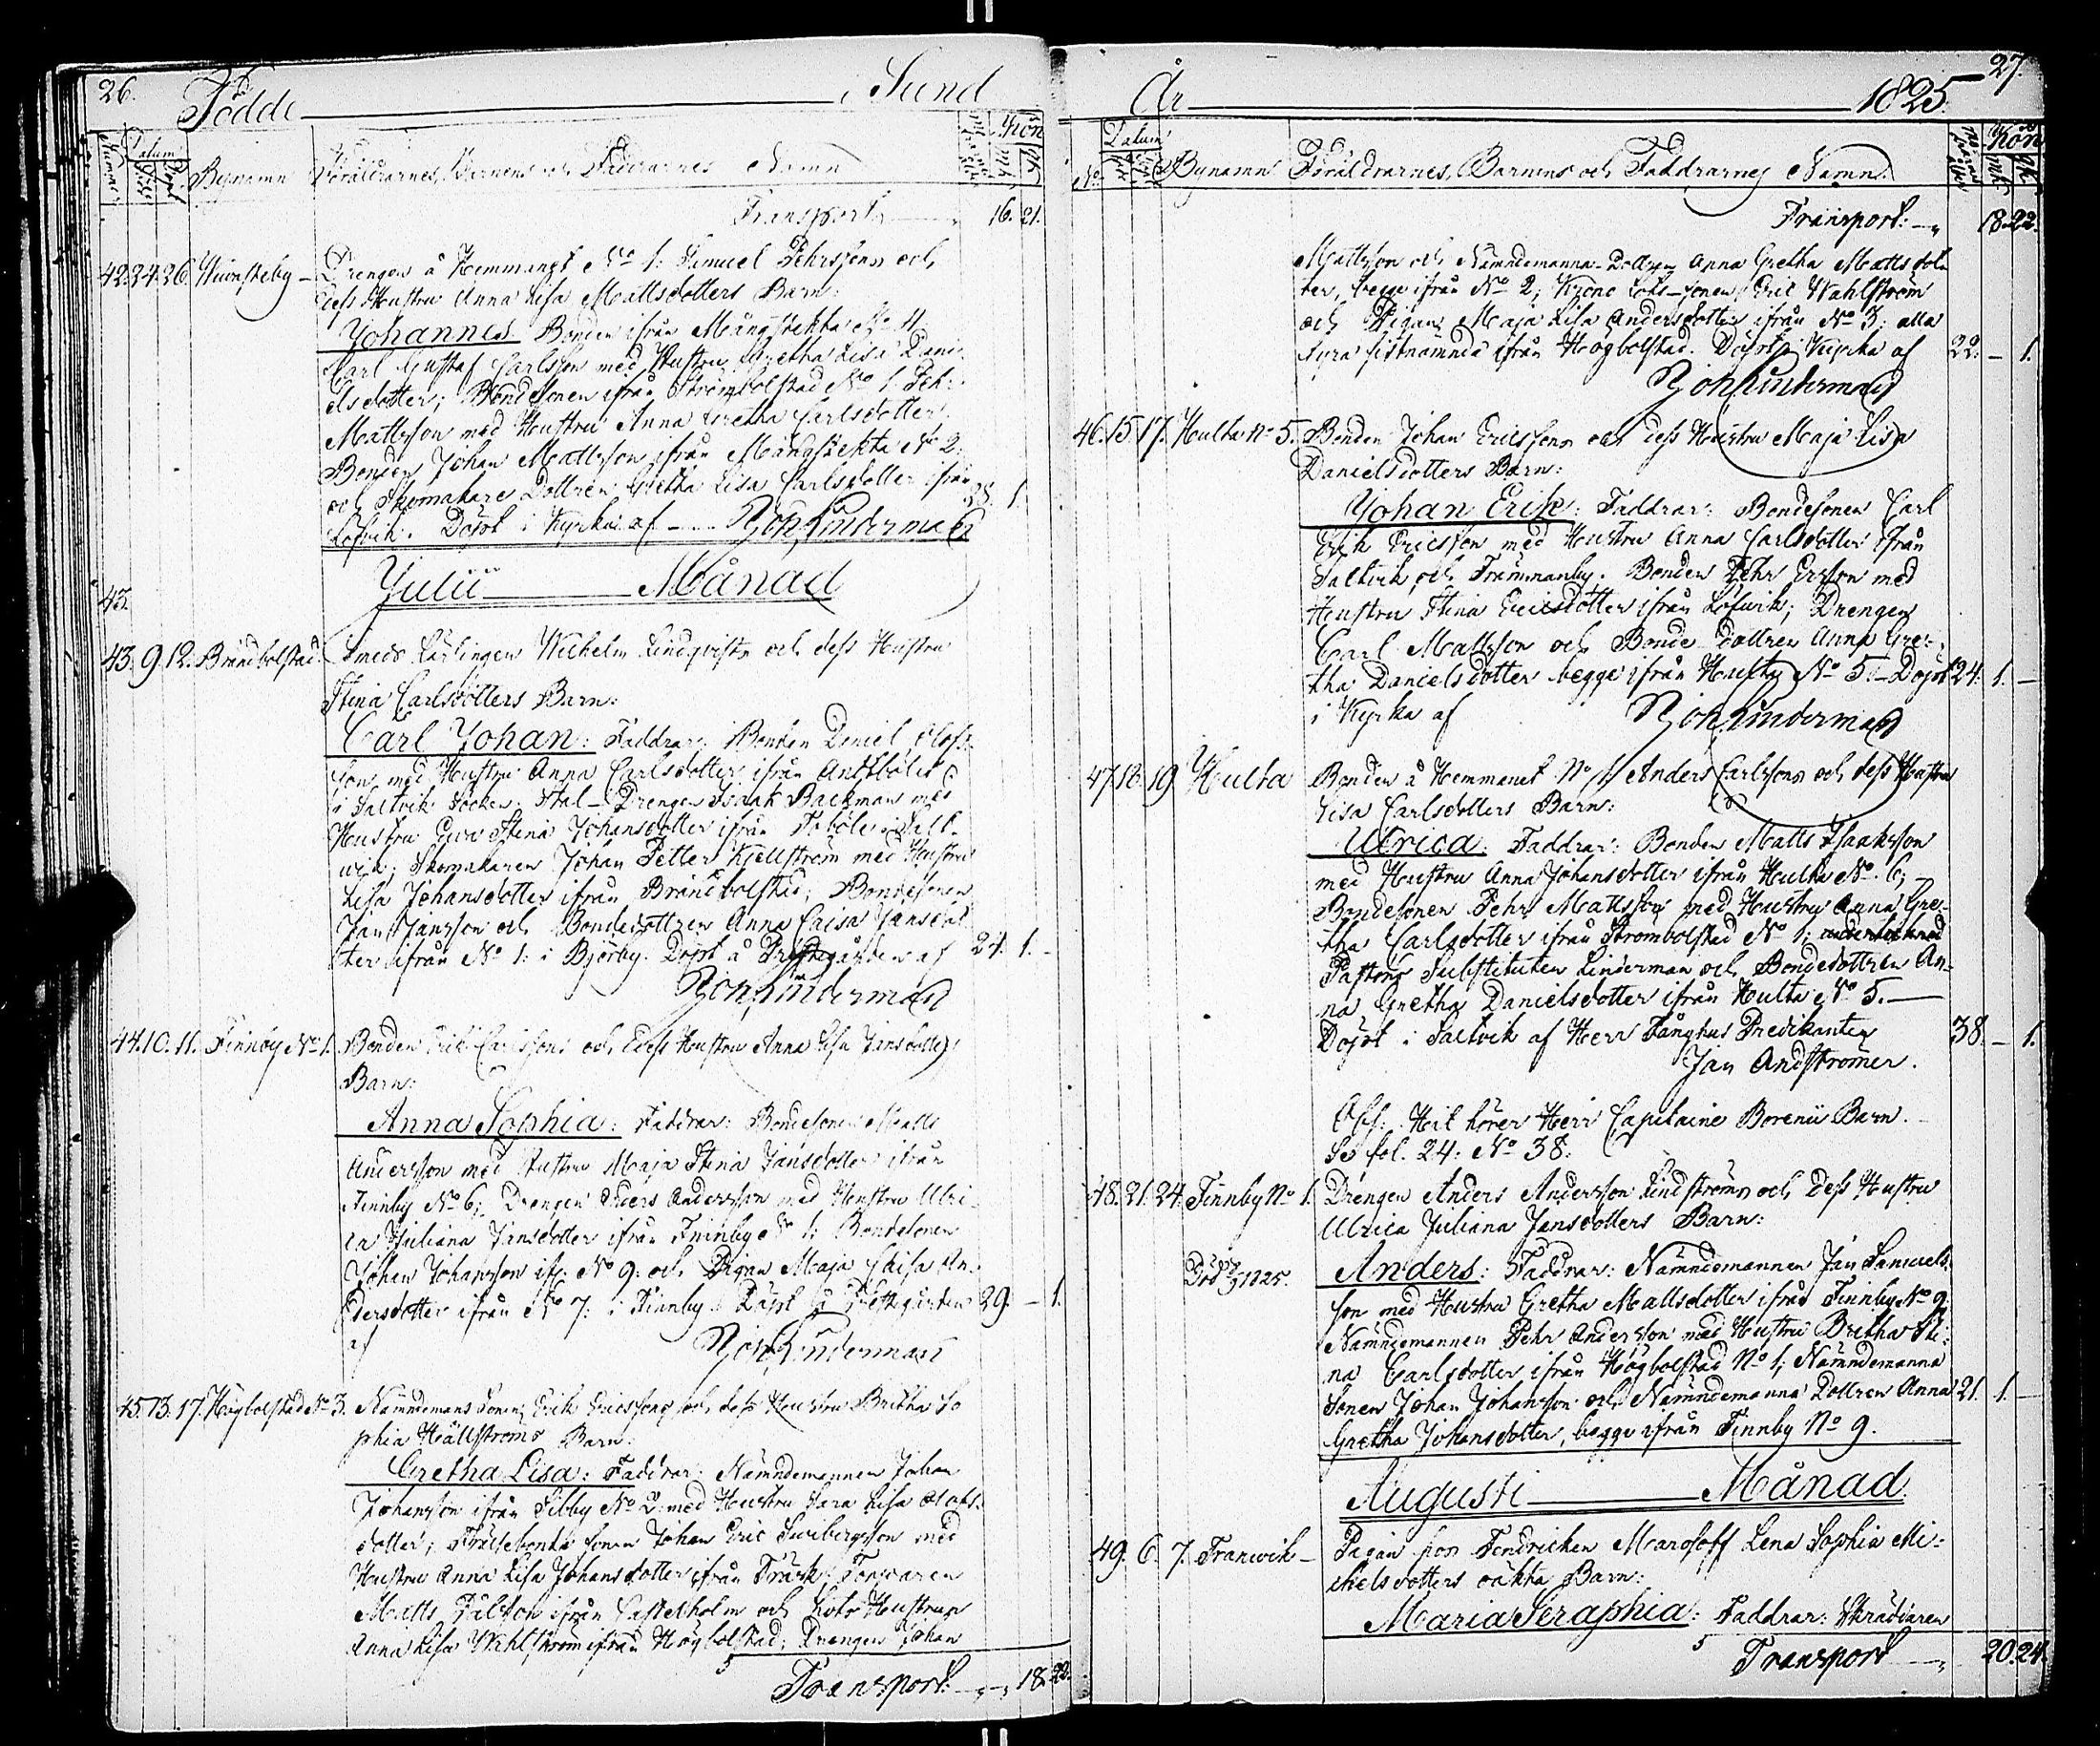 26.
Födde i Sund
Nummer Datum Bynamn Föräldrarnes, Barnens och Faddrarnes Namn Kön
Transport 16. 21.
42. 24. 26. Drengen å Hemmanet No 1: Samuel Pehrssons och
dess Hustru Anna Lisa Mattsdotters Barn:
Johannes. Bonden ifrån Mångstekta No 4
Carl Gustaf Carlsson med Hustru Gretha Lisa Dani-
elsdotter; Bondesonen ifrån Strömbolstad No 1. Pehr
Mattsson med Hustru Anna Gretha Carlsdotter,
Bonden Johan Mattsson ifrån Mångstekta No 2.
och Skomakare Dottren Gretha Lisa Carlsdotter ifrån
Lofvik. Döpt i Kyrka af Joh Linderman 28. 1.
Julii Månad
43.
43. 9. 12. Brändbolstad. Smeds Lärlingen Wilhelm Lindqvists och dess Hustru
Stina Carlsdotters Barn:
Carl Johan: Faddrar: Bonden Daniel Olofs-
son med Hustru Anna Carlsdotter ifrån Antböle
i Saltvik Socken. Stal-Drengen Isaak Backman med
Hustru Eva Stina Johansdotter ifrån Toböle i Salt-
wik; Skomakaren Johan Petter Kjellström med Hustru
Lisa Johansdotter ifrån Brändbolstad; Bondesonen
Jan Jansson och Bondedottren Anna Caisa Jansdot-
ter ifrån No 1: i Björby. Döpt å Prestegården af 24. 1. -
Joh Linderman
44. 10. 11. Finnby No 1. Bonden Erik Carlssons och dess Hustru Anna Lisa Jansdotters
Barn:
Anna Sophia: Faddrar: Bondesonen Matts
Andersson med Hustru Maja Stina Jansdotter ifrån
Finnby No 6; Drengen Anders Andersson med Hustru Ulri-
ca Juliana Jansdotter ifrån Finnby No 1: Bondesonen
Johan Johansson ifr. No 9: och Pigan Maja Lisa An-
dersdotter ifrån No 7: i Finnby. Döpt å Prestegården 29. - 1.
af Joh Linderman
45. 13. 17. Högbolstad No 3. Nämndemans Sonen Erik Ericssons och dess Hustru Britha So
phia Hällströms Barn:
Gretha Lisa: Faddrar: Nämndemannen Johan
Johansson ifrån Sibby No 2: med Hustru Sara Lisa Olofs-
dotter; Frälsebonde Sonen Johan Eric Sveibergsson med
Hustru Anna Lisa Johansdotter ifrån Träsk; Torparen
Matts Dalbon ifrån Castelholm och Hustrun
Anna Lisa Wahlström ifrån Högbolstad; Drengen Johan
Transport 18. 22.
27.
År 1825.
No Datum Bynamn Föräldrarnes, Barnens och Faddrarnes Namn. Kön
Transport: 18. 22.
Mattsson och Nämndemanna-Dottren Anna Gretha Mattsdot
ter, begge ifrån No 2; Krono Lots-sonen Eric Wahlström
och Pigan Maja Lisa Andersdotter ifrån No 3; alla
fyra sistnämnda ifrån Högbolstad. Döpt i Kyrka af 22. - 1.
Joh Linderman
46. 15. 17. Hulta No 5. Bonden Johan Ericssons och dess Hustru Maja Lisa
Danielsdotters Barn:
Johan Erik: Faddrar: Bondesonen Carl
Erik Ericsson med Hustru Anna Carlsdotter ifrån
Saltvik och Främmanby. Bonden Pehr Ersson med
Hustru Stina Ericsdotter ifrån Lofwik; Drengen
Carl Mattsson och Bonde dottren Anna Gre-
tha Danielsdotter begge ifrån Hulta No 5. Döpt 24. 1. -
i Kyrka af Joh Linderman
47. 18. 19. Hulta Bonden å Hemmanet No 1 Anders Carlssons och dess Hustru
Lisa Carlsdotters Barn:
Ulrica: Faddrar: Bonden Matts Isaaksson
med Hustru Anna Johansdotter ifrån Hulta No 6;
Bondesonen Pehr Mattsson med Hustru Anna Gre-
tha Carlsdotter ifrån Strömbolstad No 1;
Pastors Substituten Linderman och Bondedottren An-
na Gretha Danielsdotter ifrån Hulta No 5.
Döpt i Saltvik af Herr Fånghus Predikanten 38. - 1.
Jan Andströmer.
Obs: Hit hörer Herr Capitaine Borenii Barn.
Se fol. 24: No 38:
48. 21. 24. Finnby No 1. Drengen Anders Andersson Lindströms och dess Hustru
Ulrica Juliana Jansdotters Barn:
Anders: Faddrar: Nämndemannen Jan Samuels-
son med Hustru Gretha Mattsdotter ifrån Finnby No 9.
Nämndemannen Pehr Andersson med Hustru Britha Sti-
na Carlsdotter ifrån Högbolstad No 1; Nämndemanna
Sonen Johan Johansson och Nämndemanna Dottren Anna 21. 1. -
Gretha Johansdotter, begge ifrån Finnby No 9.
Augusti Månad
49. 6. 7. Tranwik - Pigan hos Fendricken Lena Sophia Mi-
chelsdotters oäkta Barn:
Maria Seraphia: Faddrar: Skräddaren
Transport 20. 24.